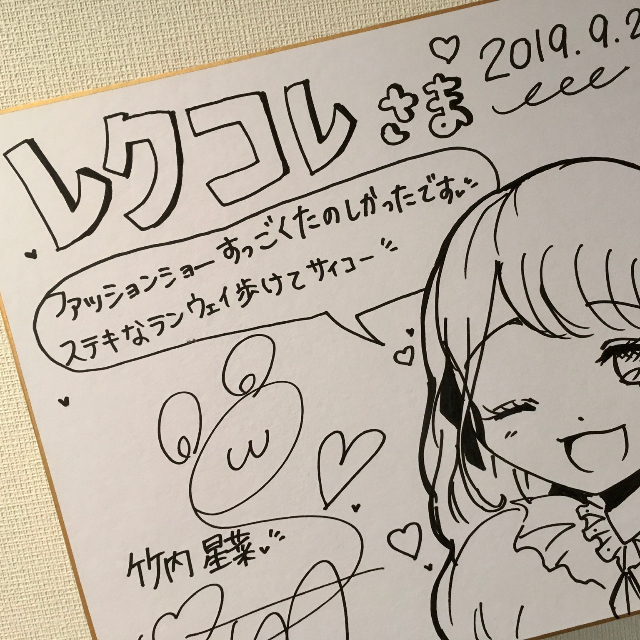 レクコレ さま
2019.9.2
ファッションショーすっごくたのしかったです
ステキなランウェイ歩けてサイコー
竹内 星菜